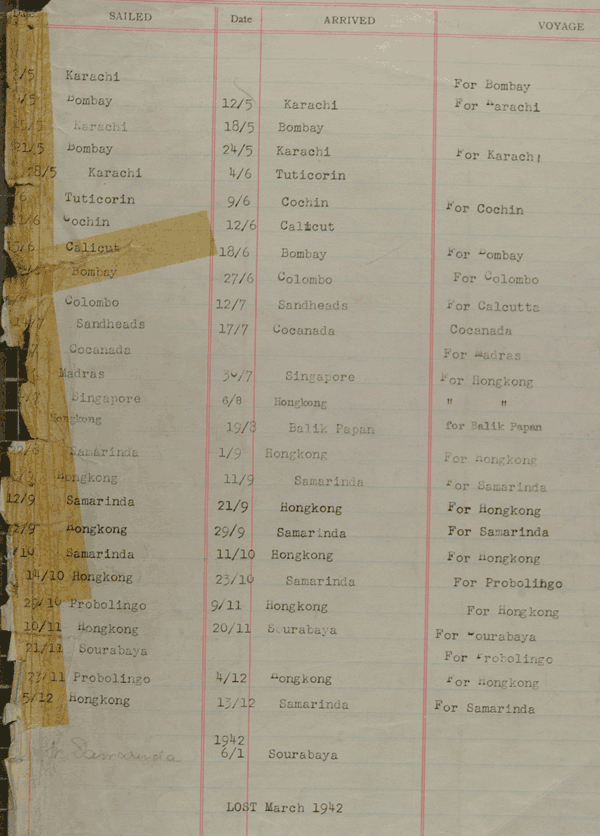 Date SAILED Date ARRIVED VOYAGE
/5 Karachi For Bombay
/5 Bombay 12/5 Karachi For Karachi
/5 Karachi 18/5 Bombay
21/5 Bombay 24/5 Karachi For Karachi
28/5 Karachi 4/6 Tuticorin
/6 Tuticorin 9/6 Cochin For Cochin
/6 Cochin 12/6 Calicut
/6 Calicut 18/6 Bombay For Bombay
Bombay 27/6 Colombo For Colombo
Colombo 12/7 Sandheads For Calcutta
/7 Sandheads 17/7 Cocanada Cocanada
/7 Cocanada For Madras
Madras 30/7 Singapore For Hongkong
/7 Singapore 6/8 Hongkong " "
Hongkong 19/8 Balik Papan for Balik Papan
Samarinda 1/9 Hongkong For Hongkong
Hongkong 11/9 Samarinda For Samarinda
12/9 Samarinda 21/9 Hongkong For Hongkong
/9 Hongkong 29/9 Samarinda For Samarinda
/10 Samarinda 11/10 Hongkong For Hongkong
14/10 Hongkong 23/10 Samarinda For Probolingo
29/10 Probolingo 9/11 Hongkong For Hongkong
10/11 Hongkong 20/11 Sourabaya For Sourabaya
21/11 Sourabaya For Probolingo
23/11 Probolingo 4/12 Hongkong For Hongkong
5/12 Hongkong 13/12 Samarinda For Samarinda
1942
Samarinda 6/1 Sourabaya
LOST March 1942